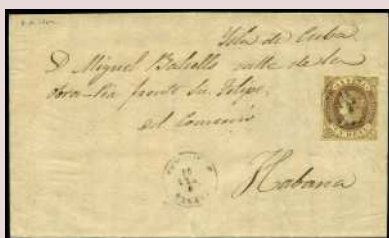 Isla de Cuba.
D Miguel Balcells calle de la
obra-Pia frente Sn. Felipe,
del Comercio
Habana